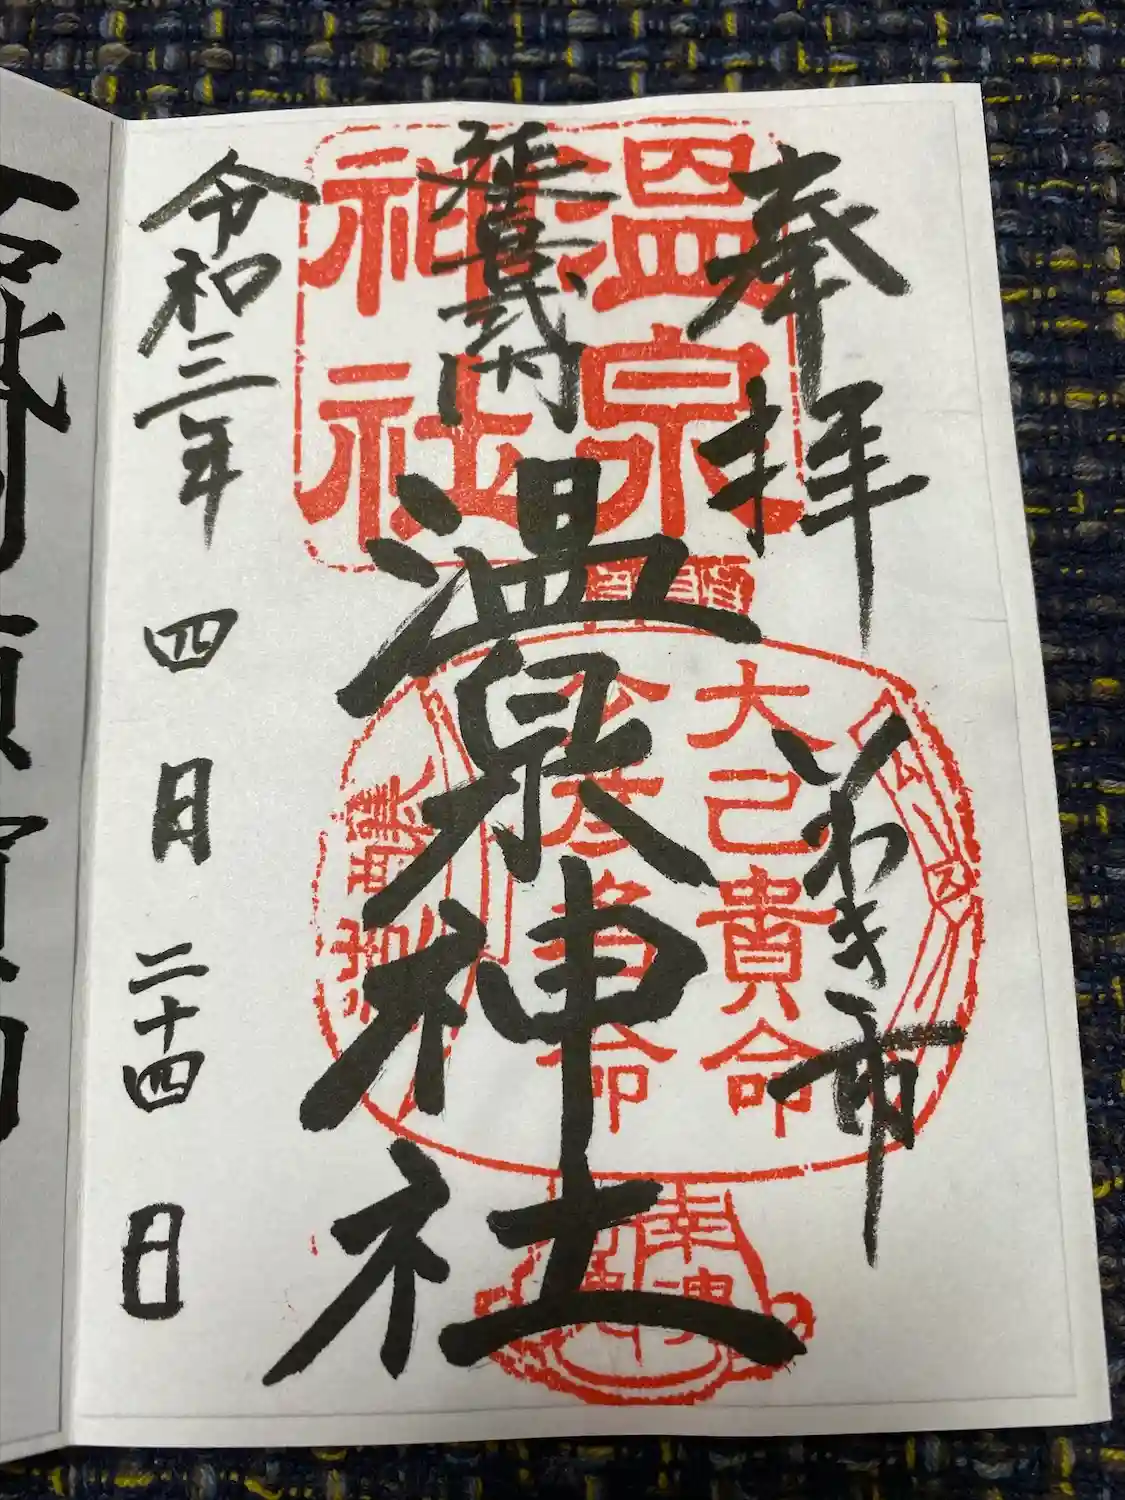 奉拝
いわき市
延喜式内
温泉神社
令和三年 四月 二十四日
温泉
神社
大己貴命
少彦名命